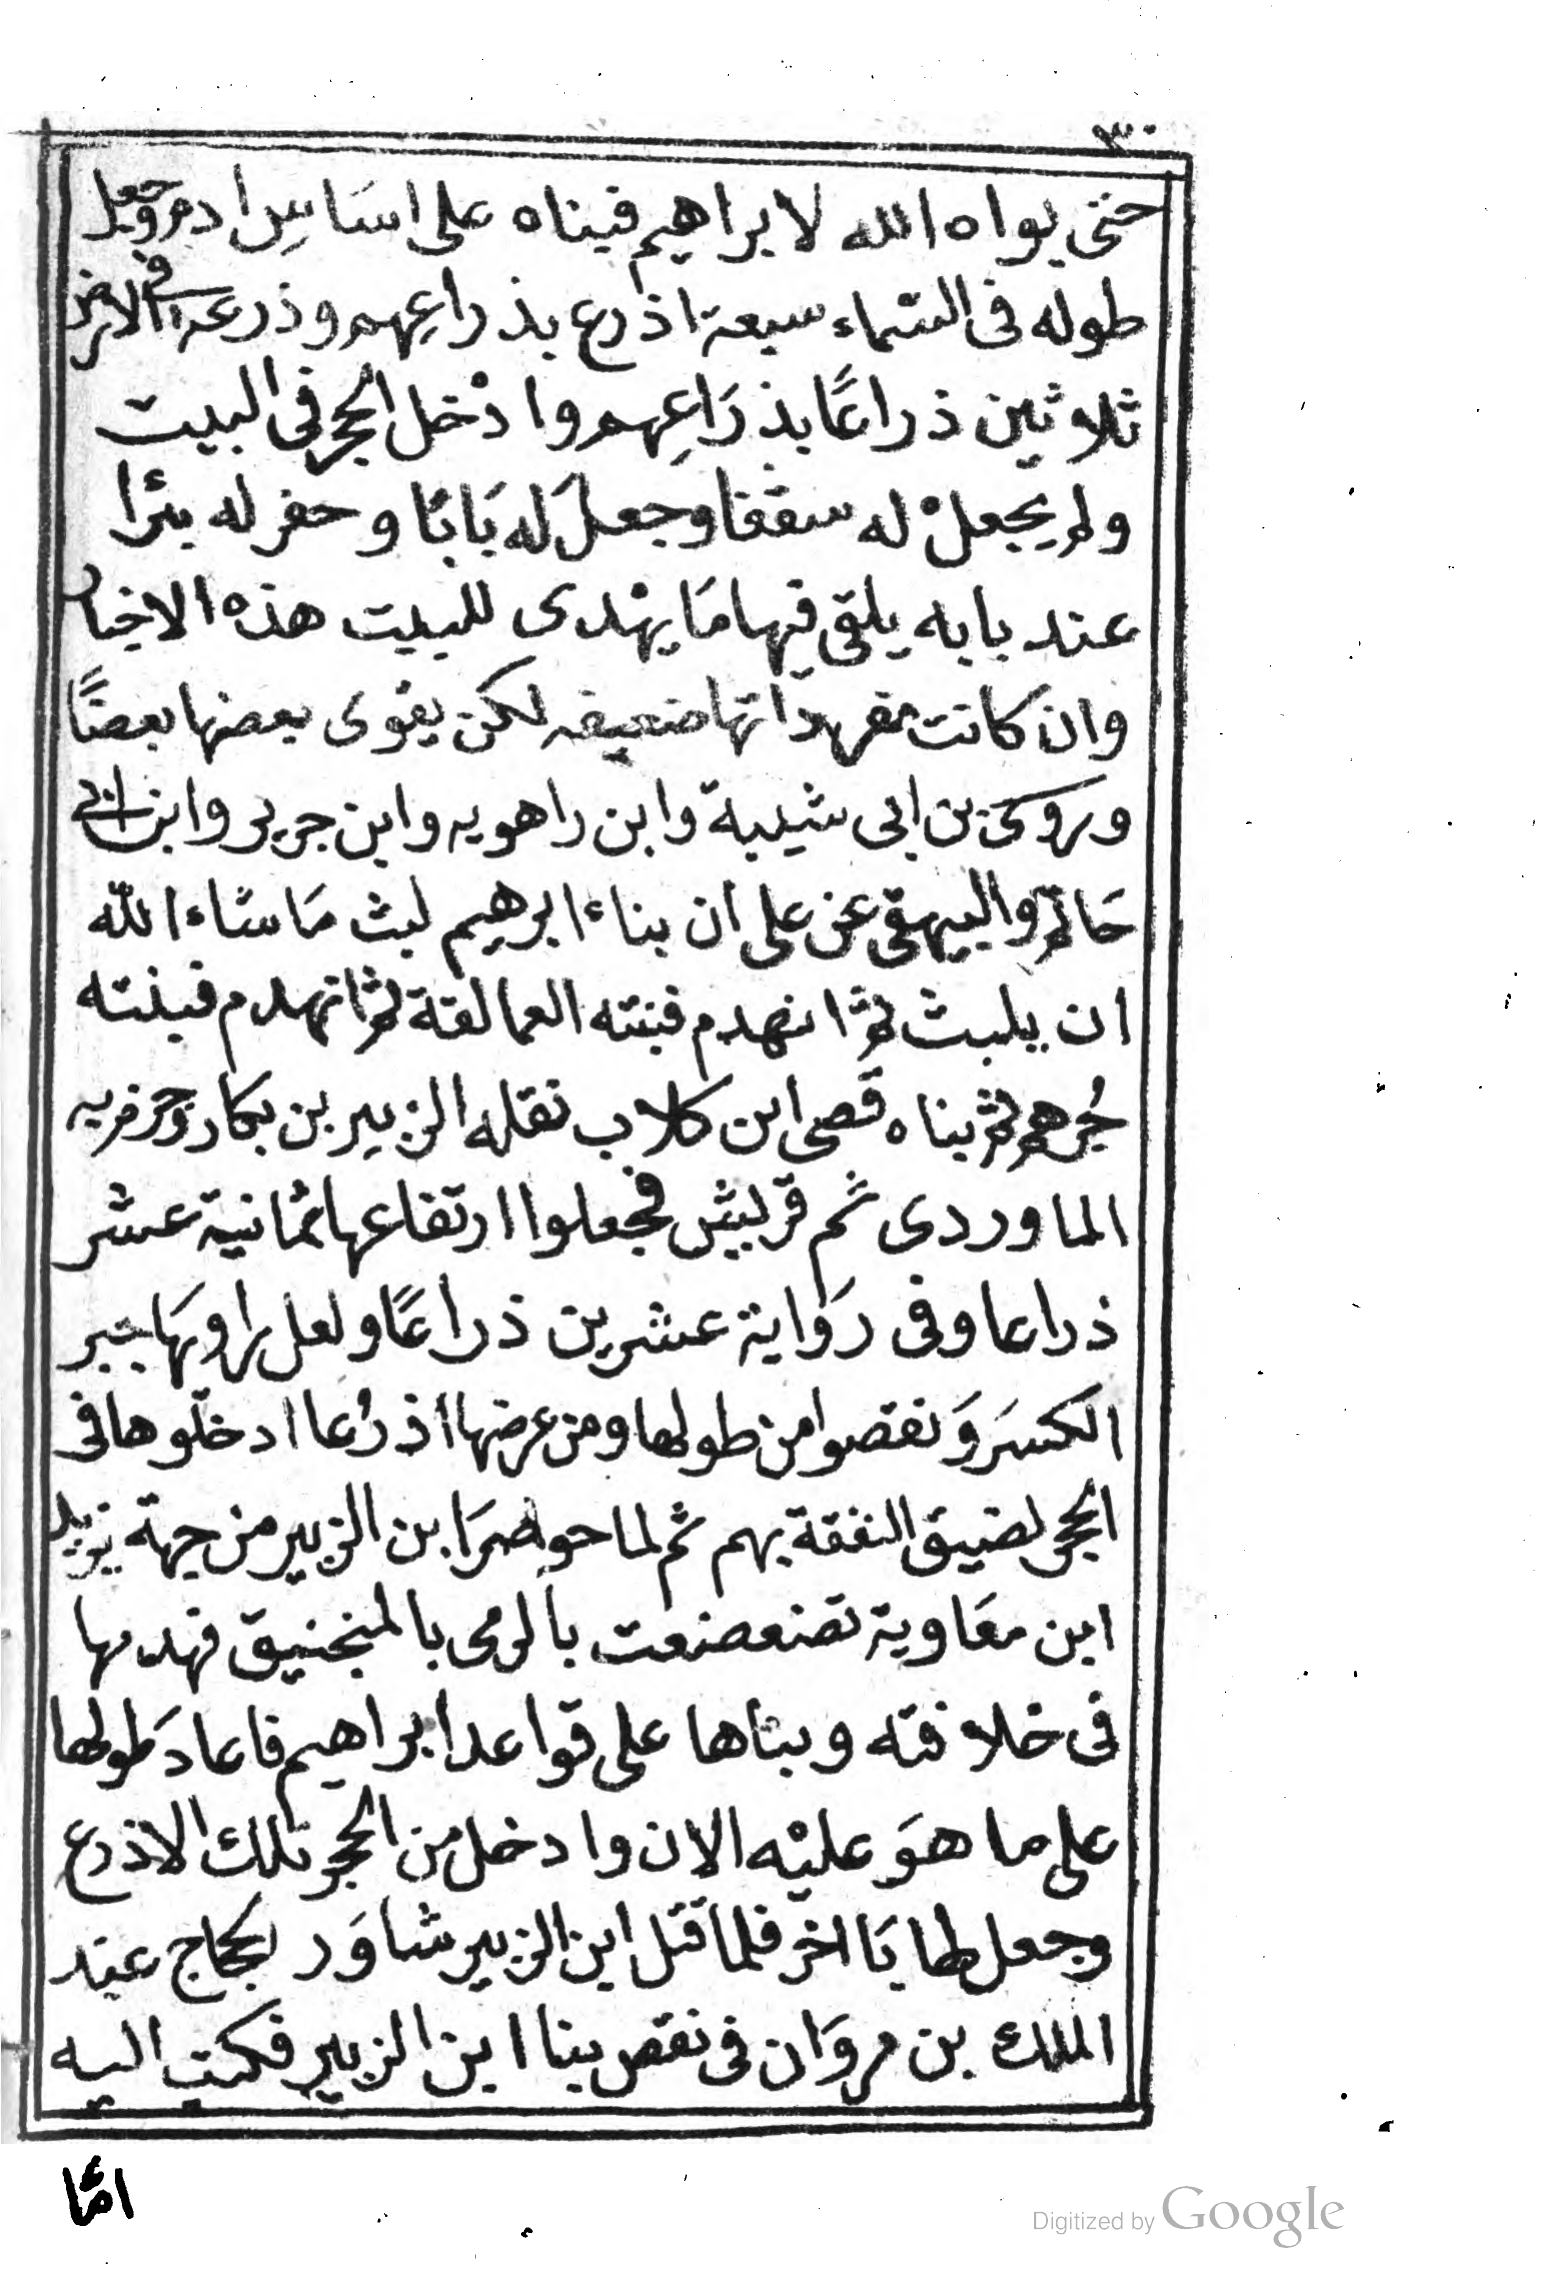 ٣٠
حتى بواه الله لابراهيم فبناه على اسَاسِ ادم وجعل
طوله فى السّماء سبعة اذرع بذراعِهم وذرعه فى الارض
ثلاثين ذراعًا بذرَاعِهم وادْخل الحجر فى البيت
ولم يجعلْ له سقفا وجعلَ له بَابًا وحفر له بئرا
عند بابه يلقى فيها مَا يهْدى للبيت هذه الاخبار
وان كانت مفرداتها ضعيفه لكن يقوى بعضها بعضًا
وروى بن ابى شيبة وابن راهويه وابن جرير وابن ابى
حَاتم والبيهقى عن على ان بناء ابرهيم لبث مَا شاء الله
ان يلبث ثم انهدم فبنته العمالقة ثم انهدم فبنته
جُرهم ثم بناه قصى ابن كلاب نقله الزبير بن بكار وجزم به
الماوردى ثم قريش فجعلوا ارتفاعها ثمانية عشر
ذراعا وفى رَواية عشرين ذراعًا ولعل راويهَا جبر
الكسَر وَنقصوا من طولها ومن عرضها اذرُعا ادخلّوها فى
الحجر لضيق النفقة بهم ثم لما حوصرَ ابن الزبير من جهة يزيد
ابن معَاوية تضعضعت بالرمى بالمنجنيق فهدمها
فى خلافته وبناها على قواعد ابراهيم فاعادَ طولها
على ما هوَ عليْه الان وادخل من الحجر تلك الاذرع
وجعل لها بَا اخر فلما قتل ابن الزبير شاوَر لحجاج عبد
الملك بن مروَان فى نقض بنا ابن الزبير فكتب اليه
امّا
Digitized by Google